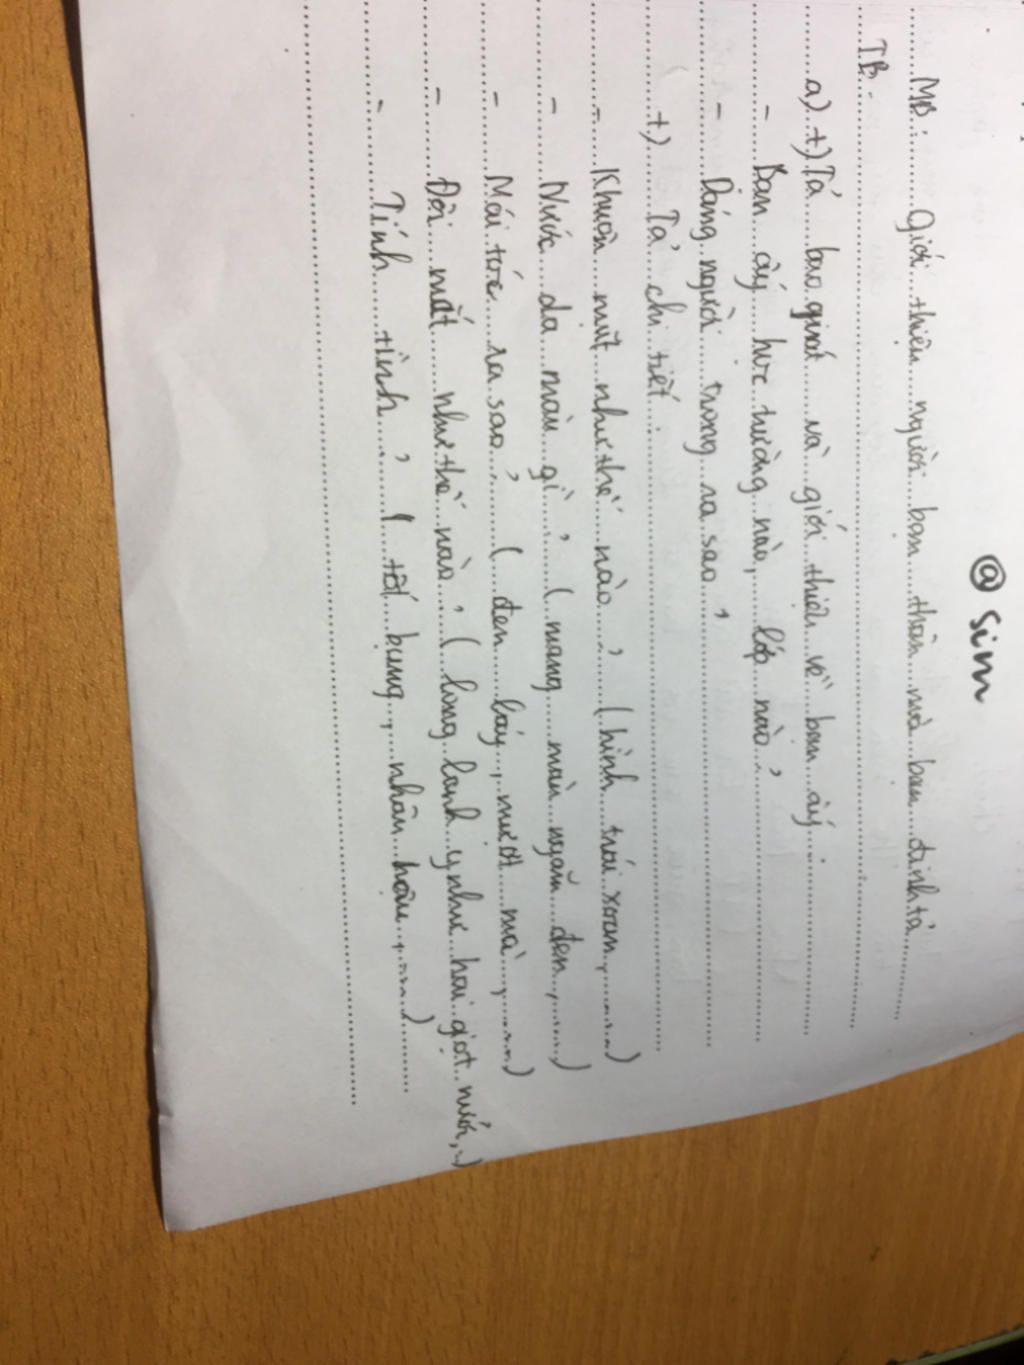 @ Sim
MB. Giới thiệu người bạn thân mà bạn định tả
TB.
a) t) Tả bao quát và giới thiệu về bạn ấy.
- Bạn ấy học trường nào, lớp nào,
- Dáng người trong ra sao,
t) Tả chi tiết.
- Khuôn mặt như thế nào, (hình trái xoan,......)
- Nước da màu gì, (mang màu ngăm đen,......)
- Mái tóc ra sao, (đen láy, mượt mà,......)
- Đôi mắt như thế nào, (long lanh y như hai giọt nước,..)
- Tính tình, ( tốt bụng, nhân hậu,......)